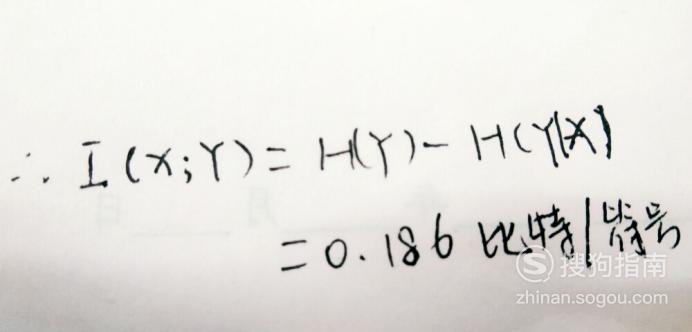 ∴ I(X;Y)=H(Y)-H(Y|X)
=0.186 比特/符号
搜狗指南
zhinan.sogou.com